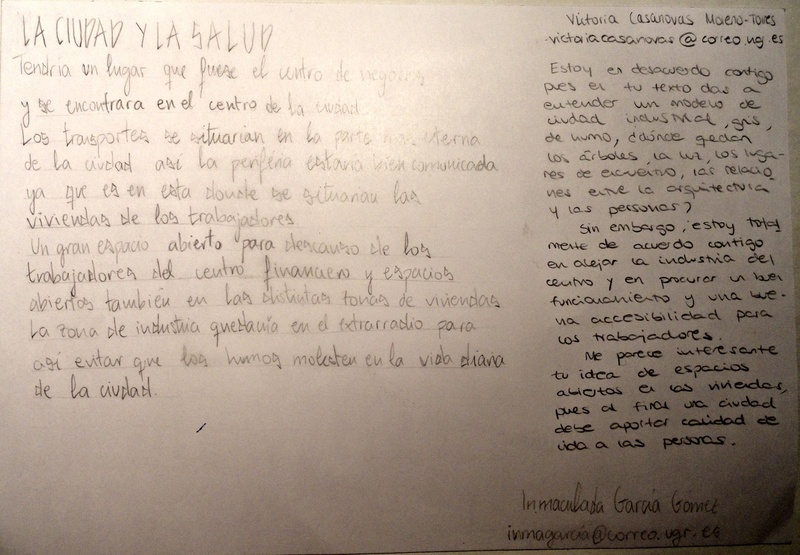 LA CIUDAD Y LA SALUD
Tendría un lugar que fuese el centro de negocios
y se encontrara en el centro de la ciudad
Los transportes se situarian en la parte mas eterna
de la ciudad así la periferia estaria bien comunicada
ya que es en esta donde se situarian las
viviendas de los trabajadores.
Un gran espacio abierto para descanso de los
trabajadores del centro financiero y espacios
abiertos también en las distintas zonas de viviendas
La zona de industria quedaria en el extrarradio para
así evitar que los humos molesten en la vida diaria
de la ciudad.
Victoria Casanovas Moreno-Torres
victoriacasanovas@correo.ugr.es
Estoy en desacuerdo contigo
pues en tu texto das a
entender un modelo de
ciudad industrial, gris,
de humo, ¿dónde quedan
los árboles, la luz, los luga-
res de encuentro, las relacio
nes entre la arquitectura
y las personas?
Sin embargo, estoy total
mente de acuerdo contigo
en alejar la industria del
centro y en procurar un buen
funcionamiento y una bue-
na accesibilidad para
los trabajadores.
Me parece interesante
tu idea de espacios
abiertos en las viviendas,
pues al final una ciudad
debe aportar calidad de
vida a las personas.
Inmaculada García Gómez
inmagarcia@correo.ugr.es